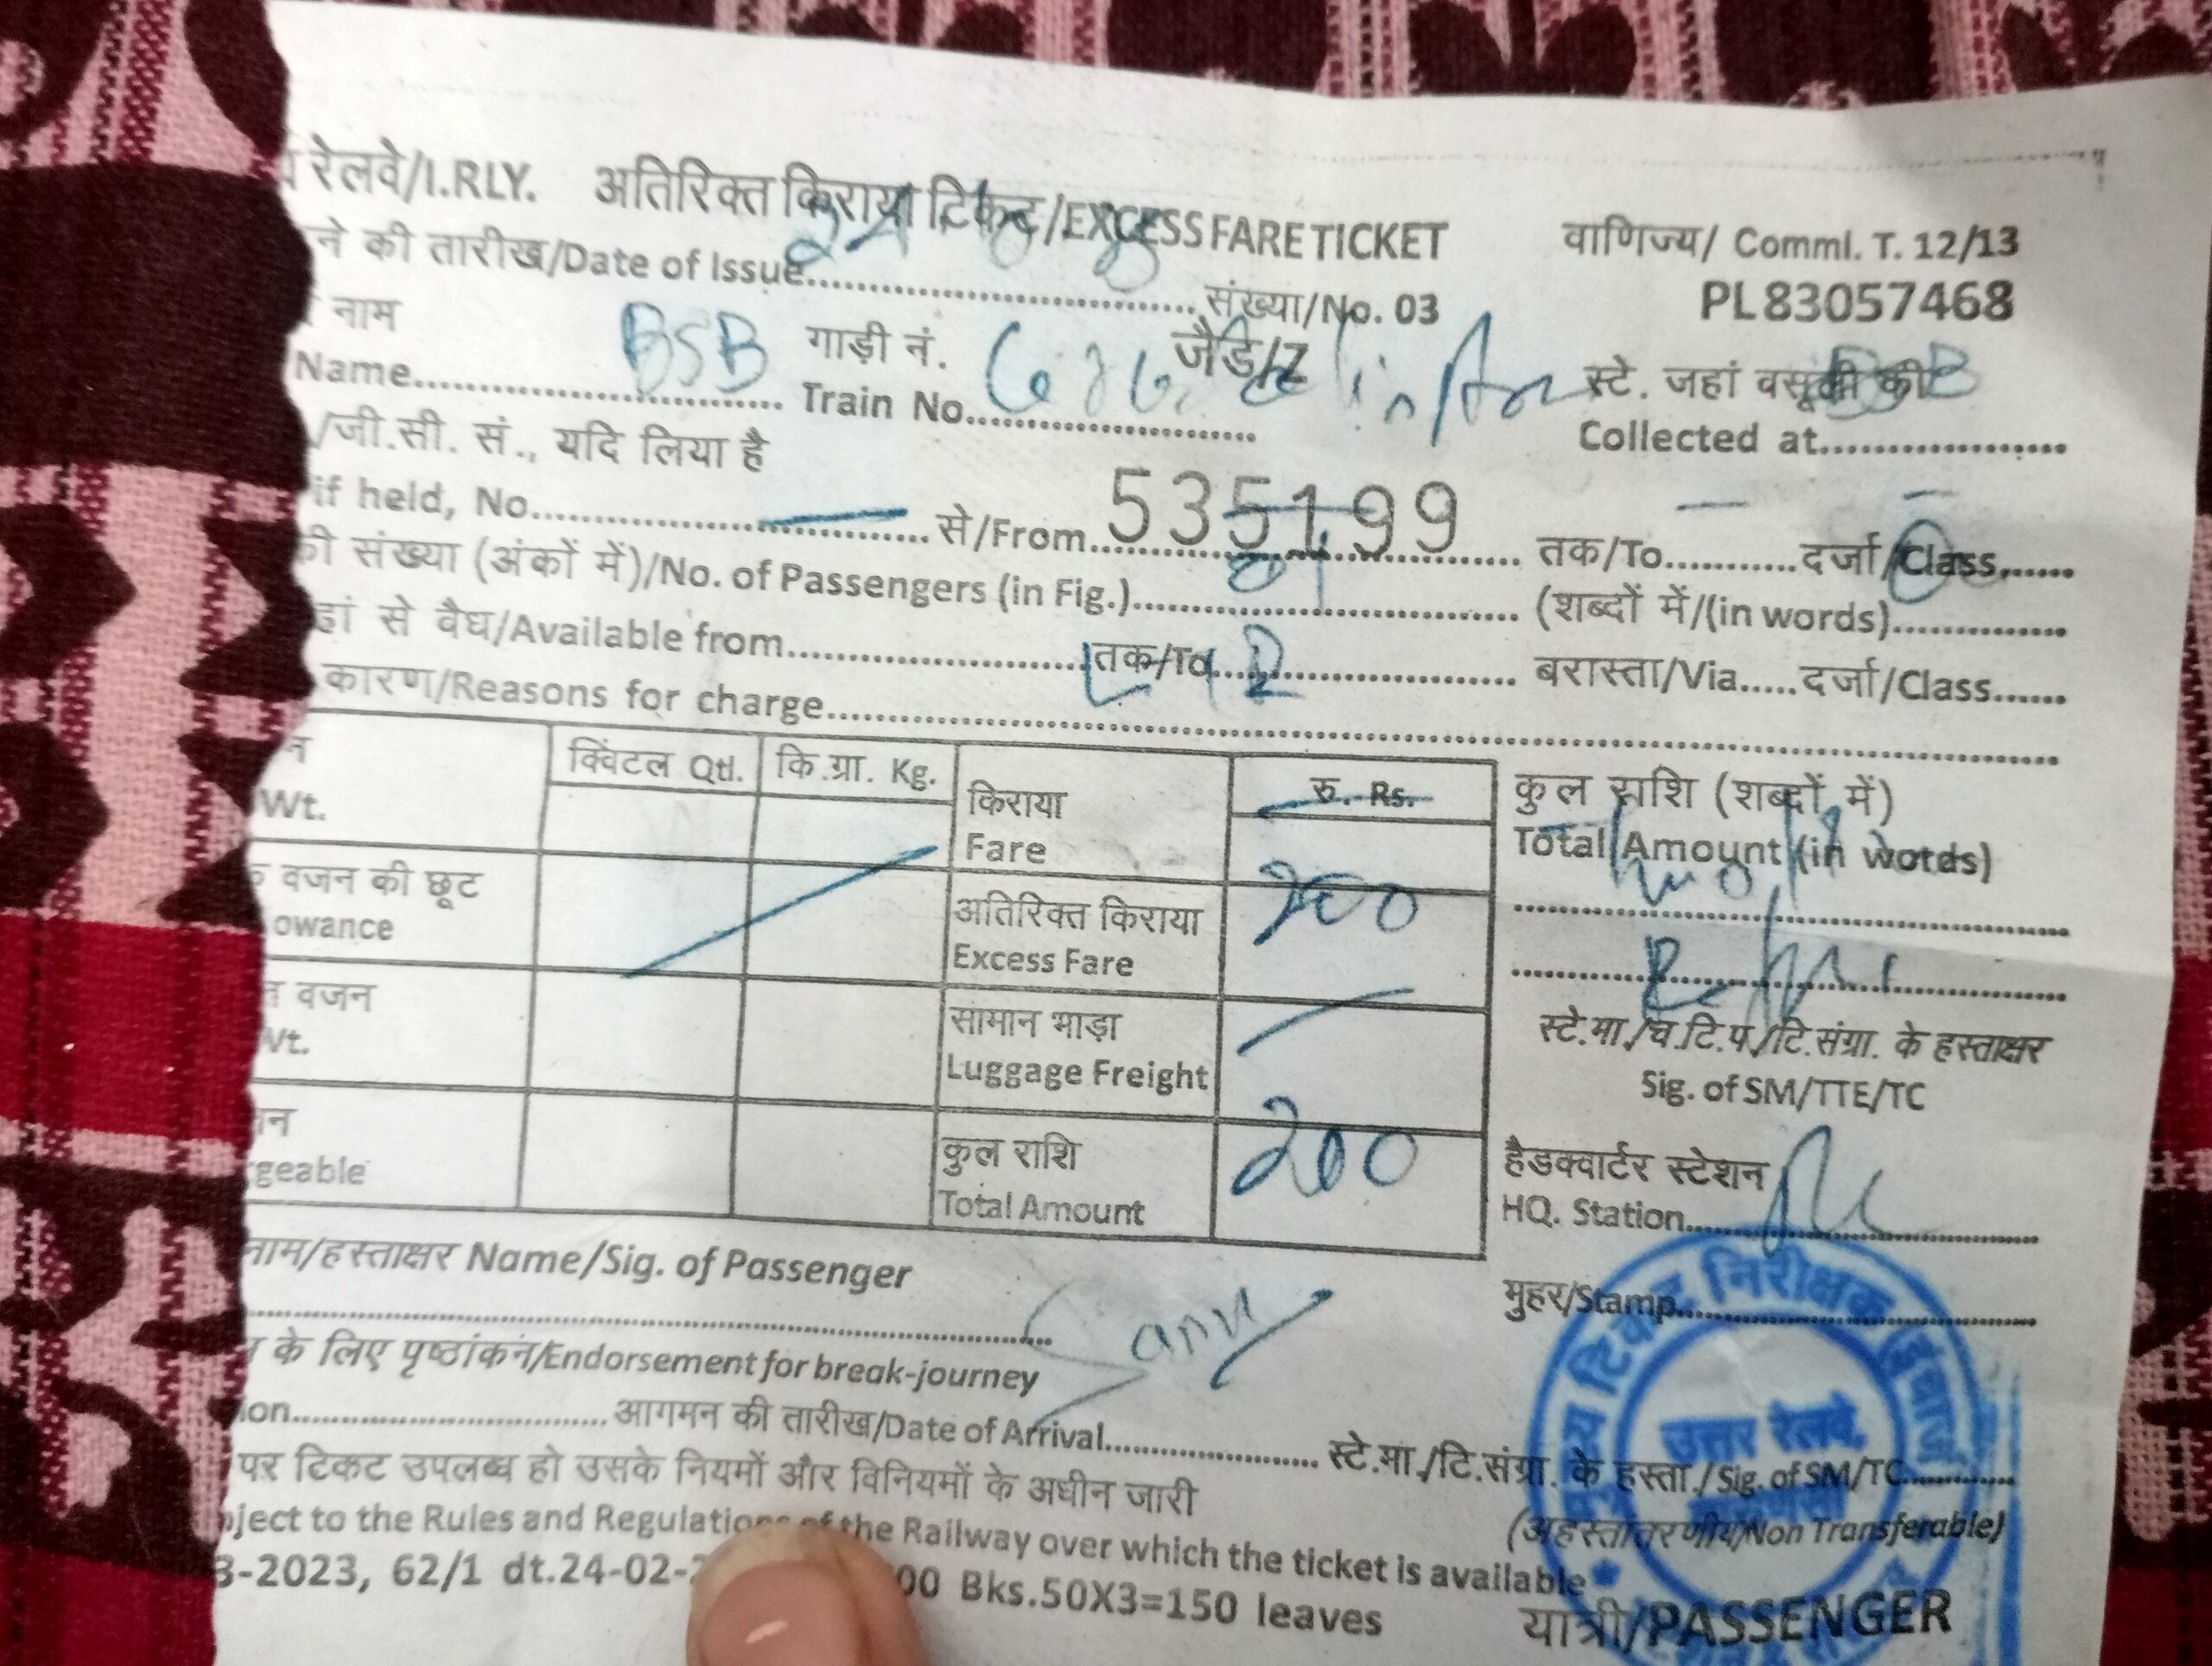 रेलवे/I.RLY. अतिरिक्त किराया टिकट/EXCESS FARE TICKET वाणिज्य/ Comml. T. 12/13
ने की तारीख/Date of Issue.......... संख्या/No. 03 PL83057468
नाम गाड़ी नं. जैड/Z स्टे. जहां वसूली की
Name.......... BSB Train No.......... Collected at.......... BSB
/जी.सी. सं., यदि लिया है
if held, No.......... से/From.......... 535199 तक/To.......... दर्जा/Class......
की संख्या (अंकों में)/No. of Passengers (in Fig.).......... 01 (शब्दों में/(in words)..........
हां से वैध/Available from.......... तक/To.......... बरास्ता/Via..... दर्जा/Class......
कारण/Reasons for charge..........
न क्विंटल Qtl. कि.ग्रा. Kg. किराया रु. Rs. कुल राशि (शब्दों में)
Wt. Fare Total Amount (in words)
वजन की छूट अतिरिक्त किराया 200
owance Excess Fare
त वजन सामान भाड़ा स्टे.मा./च.टि.प./टि.संग्रा. के हस्ताक्षर
Wt. Luggage Freight Sig. of SM/TTE/TC
न कुल राशि 200 हैडक्वार्टर स्टेशन
geable Total Amount HQ. Station..........
नाम/हस्ताक्षर Name/Sig. of Passenger मुहर/Stamp..........
के लिए पृष्ठांकन/Endorsement for break-journey
ion.......... आगमन की तारीख/Date of Arrival.......... स्टे.मा./टि.संग्रा. के हस्ता./Sig. of SM/TC..........
पर टिकट उपलब्ध हो उसके नियमों और विनियमों के अधीन जारी (अहस्तांतरणीय/Non Transferable)
bject to the Rules and Regulations of the Railway over which the ticket is available
3-2023, 62/1 dt.24-02- 00 Bks.50X3=150 leaves यात्री/PASSENGER
मुख्य टिकट निरीक्षक इंचार्ज
उत्तर रेलवे,
वाराणसी